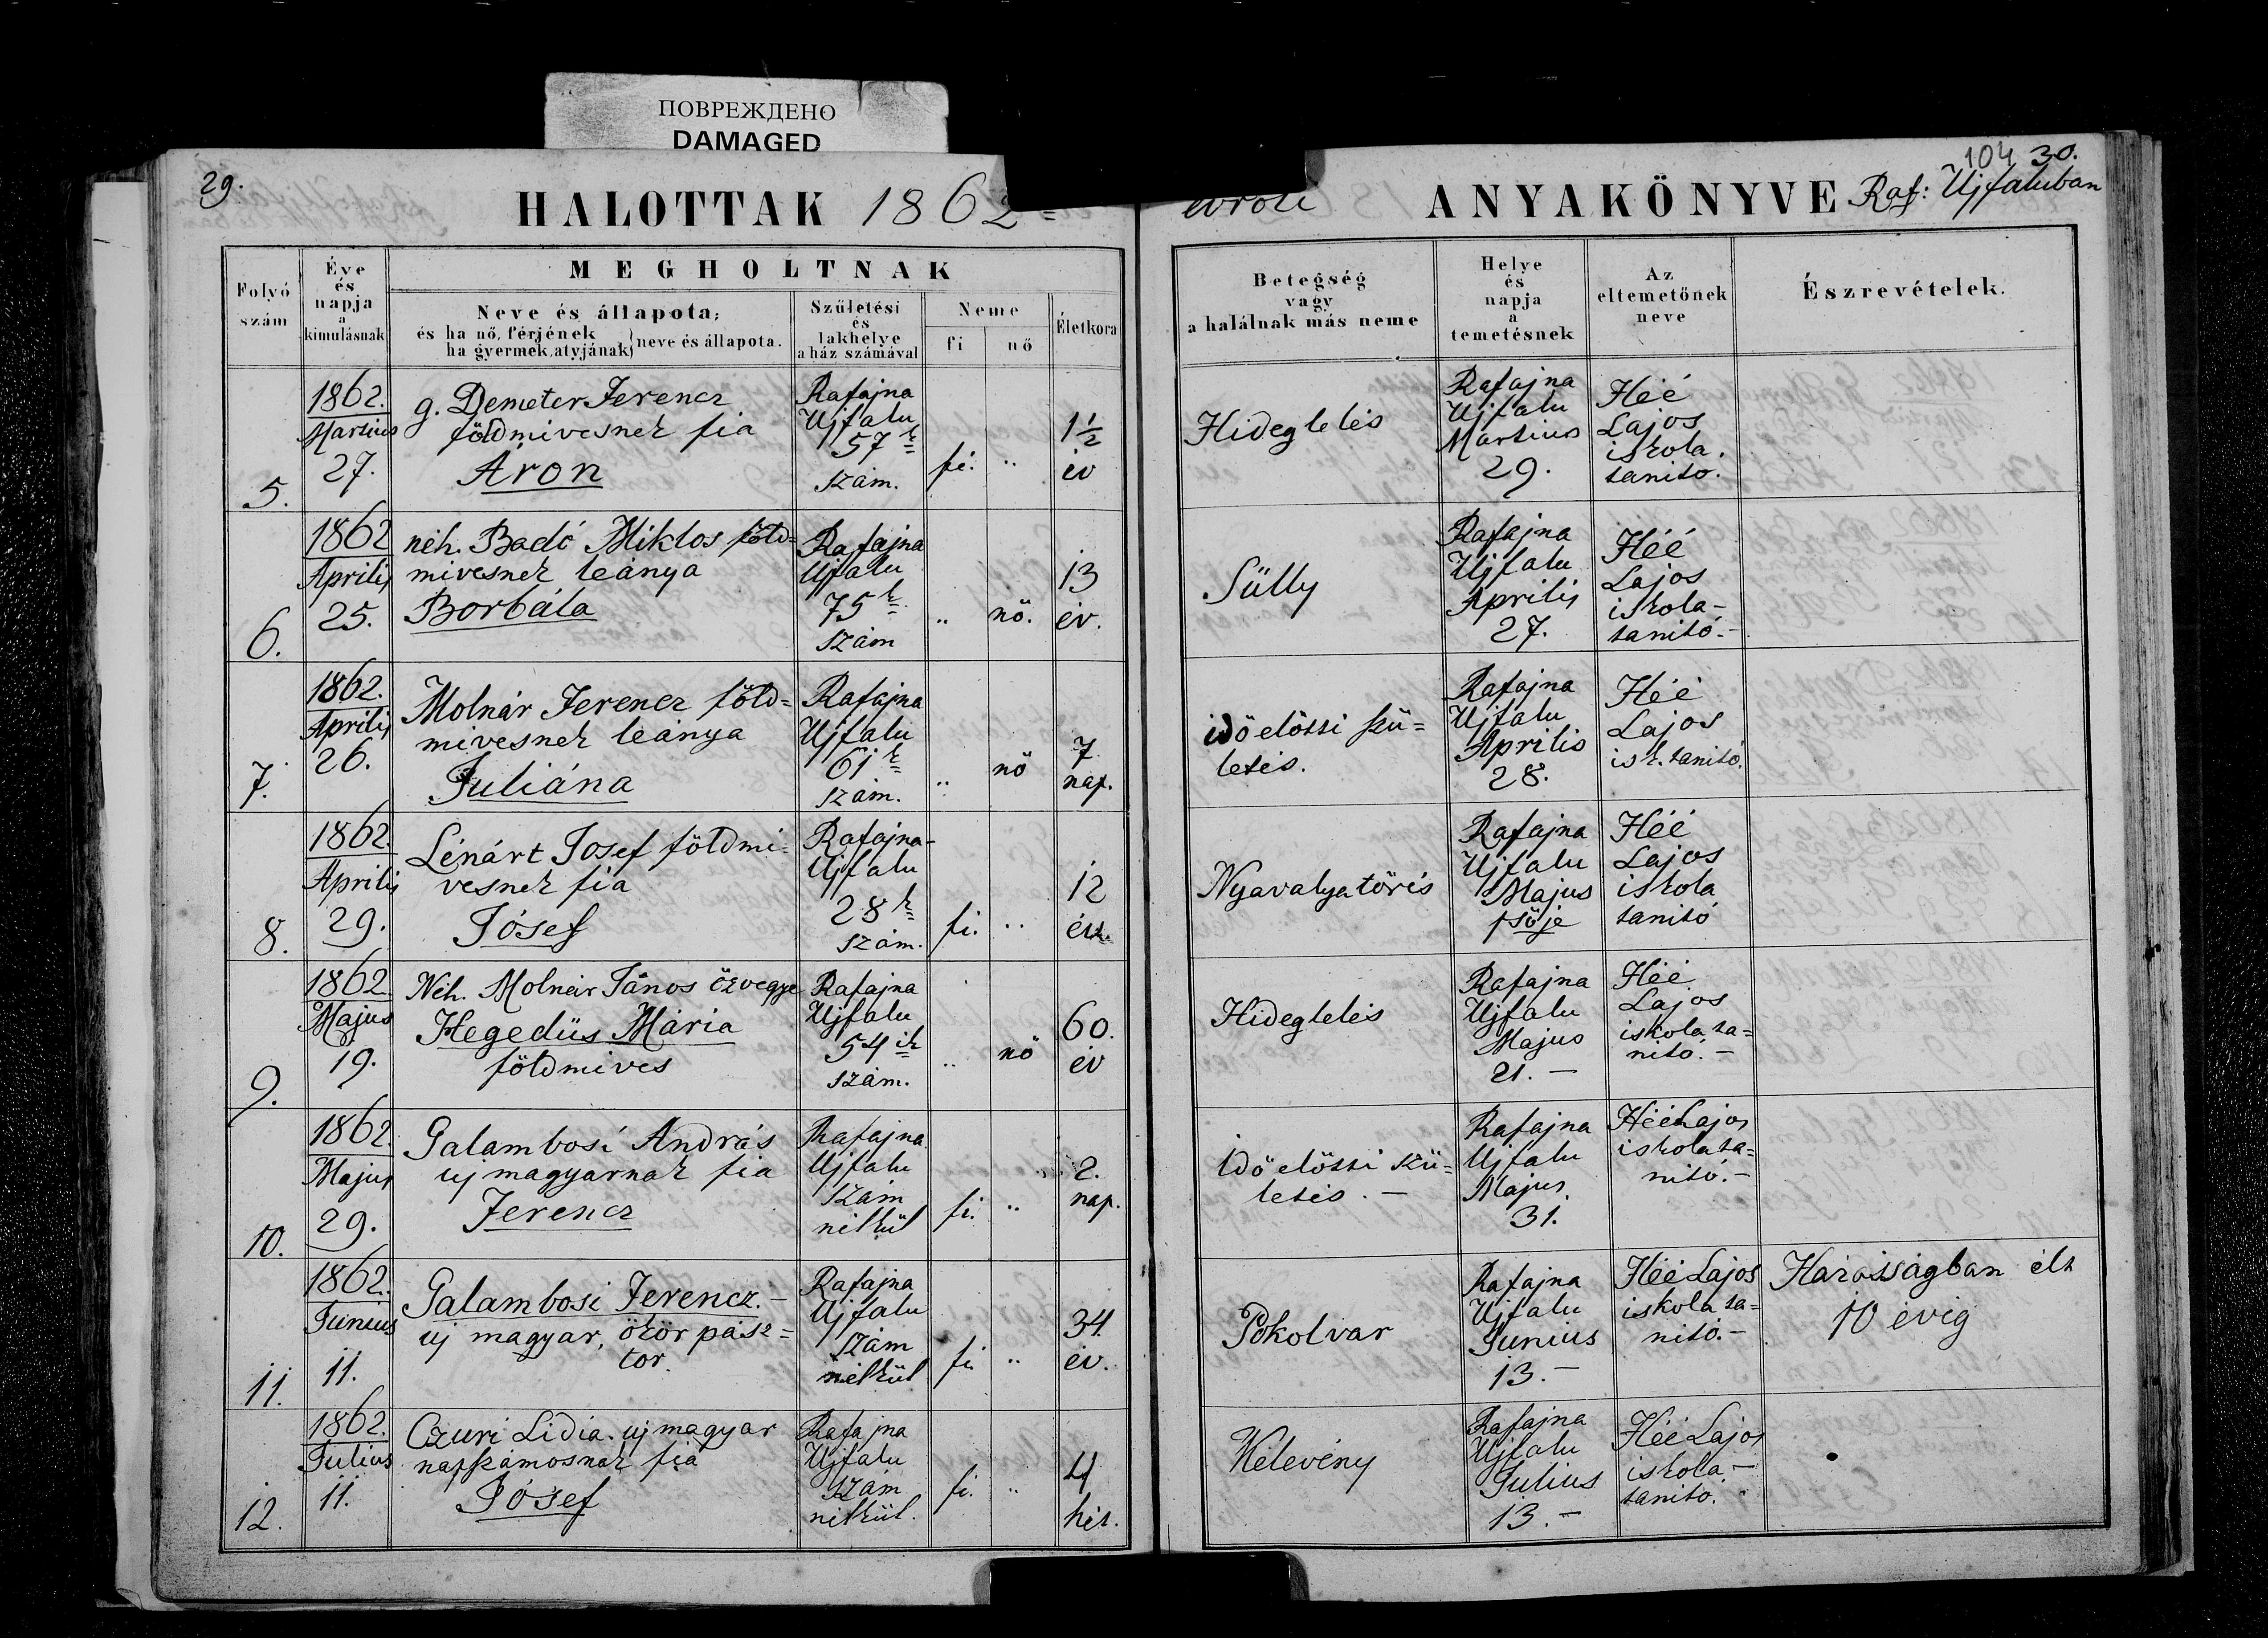 ПОВРЕЖДЕНО
DAMAGED
29.
HALOTTAK 1862
ANYAKÖNYVE Raf: Ujfaluban
104 30.
Folyó
szám
Éve
és
napja
a
kimulásnak
MEGHOLTNAK
Neve és állapota;
és ha nő, férjének
ha gyermek, atyjának
neve és állapota.
Születési
és
lakhelye
a ház számával
Neme
fi
nő
Életkora
Betegség
vagy
a halálnak más neme
Helye
és
napja
a
temetésnek
Az
eltemetőnek
neve
Észrevételek.
5.
1862.
Martius
27.
g. Demeter Ferencz
földmivesnek fia
Áron
Rafajna
Ujfalu
57k
szám.
fi.
"
1½
év
Hideglelés
Rafajna
Ujfalu
Martius
29.
Héé
Lajos
iskola.
tanitó.
6.
1862
Aprilis
25.
néh. Badó Miklos föld=
mivesnek leánya
Borbála
Rafajna
Ujfalu
75k
szám
"
nő.
13
év.
Sülly
Rafajna
Ujfalu
Aprilis
27.
Héé
Lajos
iskola-
tanitó.-
7.
1862.
Aprilis
26.
Molnár Ferencz föld=
mivesnek leánya
Juliána
Rafajna
Ujfalu
61k
szám.
"
nő
7
nap.
idő előtti szü=
letés.
Rafajna
Ujfalu
Aprilis
28.
Héé
Lajos
isk. tanitó.
8.
1862.
Aprilis
29.
Lénárt Josef földmi=
vesnek fia
Jósef
Rafajna-
Ujfalu
28k
szám.
fi.
"
12
év.
Nyavalyatörés
Rafajna
Ujfalu
Majus
1sője
Héé
Lajos
iskola
tanitó
9.
1862
Majus
19.
Néh. Molnár János özvegye
Hegedüs Mária
földmives
Rafajna
Ujfalu
54ik
szám.
"
nő
60.
év
Hideglelés
Rafajna
Ujfalu
Majus
21.-
Héé
Lajos
iskola ta=
nitó.-
10.
1862.
Majus
29.
Galambosi András
uj magyarnak fia
Ferencz
Rafajna
Ujfalu
szám
nélkül
fi.
"
2.
nap.
Idő előtti szü=
letés.-
Rafajna
Ujfalu
Majus.
31.
Héé Lajos
iskola ta=
nitó.-
11.
1862.
Junius
11.
Galambosi Ferencz.-
uj magyar, ökör pász=
tor.
Rafajna
Ujfalu
szám
nélkül
fi.
"
34.
év.
Pokolvar
Rafajna
Ujfalu
Junius
13.-
Héé Lajos
iskola ta=
nitó.-
Házasságban élt
10 évig
12.
1862.
Julius
11.
Czuri Lidia. uj magyar
napszámosnak fia
Jósef
Rafajna
Ujfalu
szám
nélkül.
fi.
"
4
hét.
Kelevény
Rafajna
Ujfalu
Julius
13.-
Héé Lajos
iskola.-
tanitó.